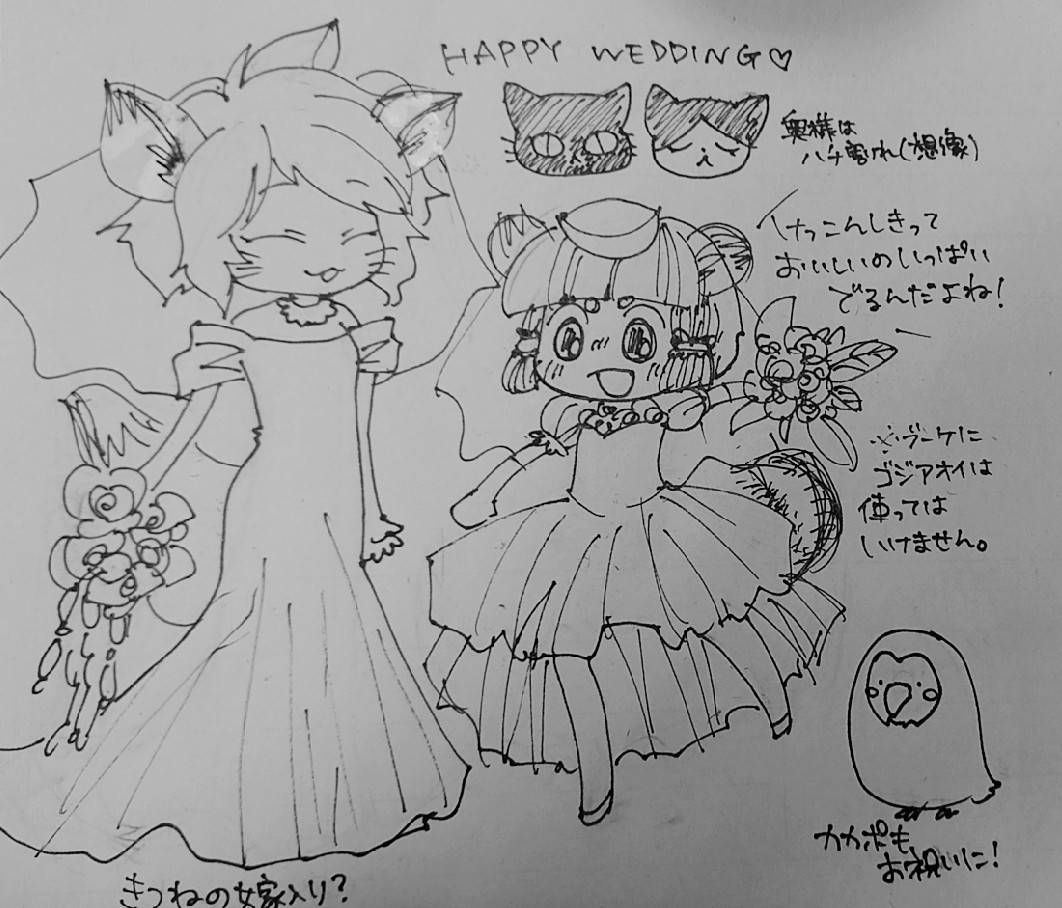 HAPPY WEDDING♡
奥様は
ハチ割れ(想像)
けっこんしきって
おいしいのいっぱい
でるんだよね!
※ブーケに
ゴジアオイは
使っては
いけません。
カカポも
お祝いに!
きつねの嫁入り?